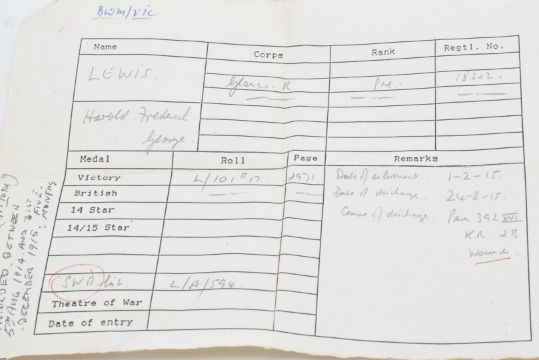 BWM/Vic
Name Corps Rank Regtl. No.
LEWIS. Glouc. R Pte. 18202.
Harold Frederick
George.
Medal Roll Page Remarks
Victory L/101 B 17. 2971. Date of enlistment. 1-2-15.
British Date of discharge. 24-8-15.
14 Star Cause of discharge. Para 392 XVI
14/15 Star KR 2B
Wounds.
SWB list. L/A/594.
Theatre of War
Date of entry
AWARDED BETWEEN
5TH AUG 1914 AND 31ST
DECEMBER 1915; FIVE
MONTHS